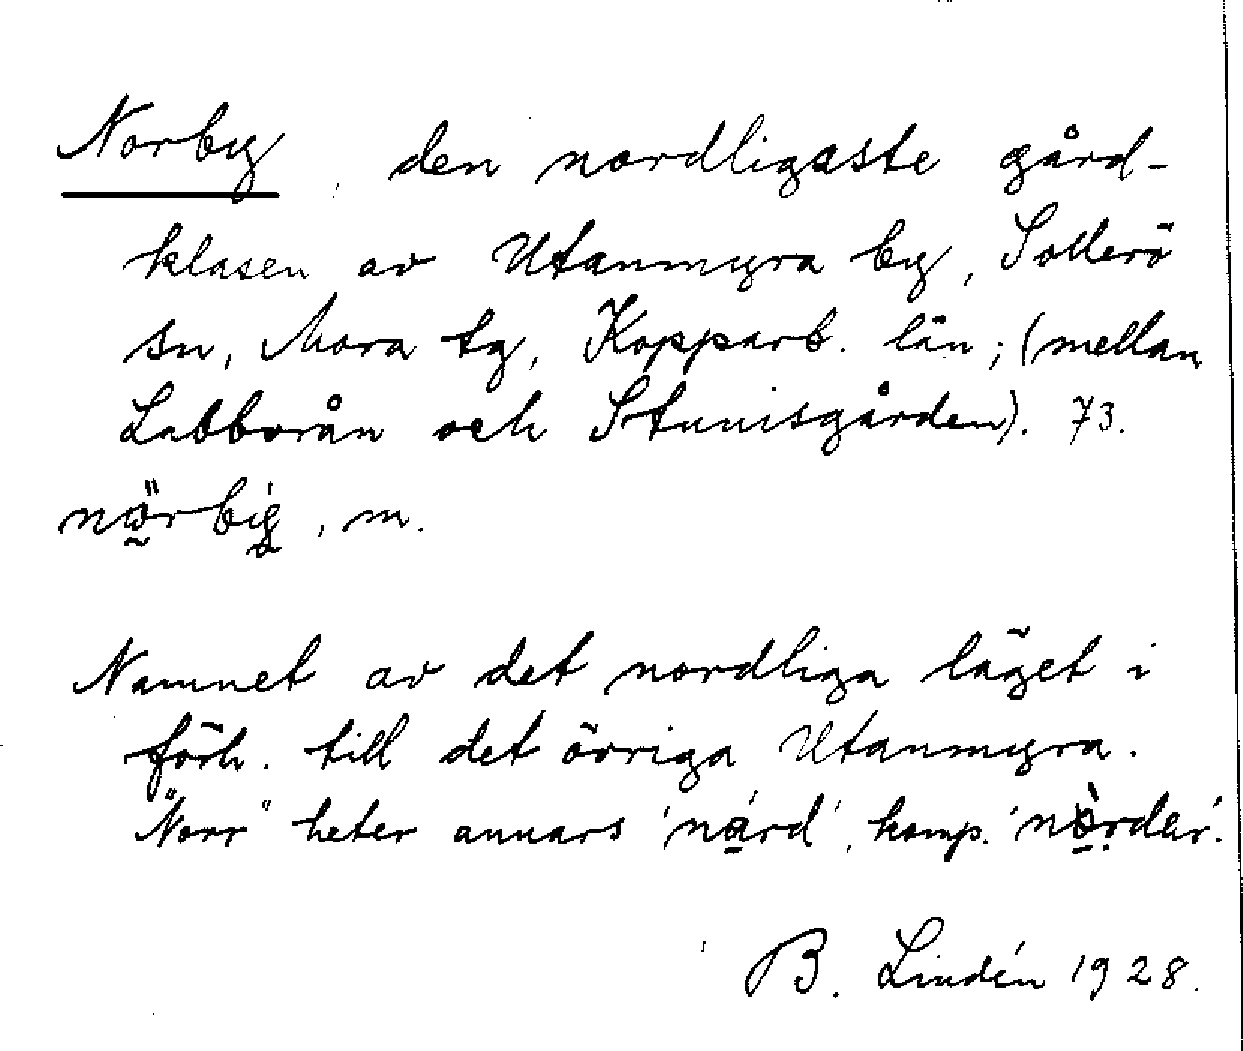 Norby, den nordligaste gård-
klasen av Utanmyra by, Sollerö
sn, Mora tg, Kopparb. län; (mellan
Labborån och Stunisgården). 73.
nö̰rbig̭, m.
Namnet av det nordliga läget i
förh. till det övriga Utanmyra.
"Norr" heter annars 'ná̱rd', komp. 'nò̱ṛder'.
B. Lindén 1928.